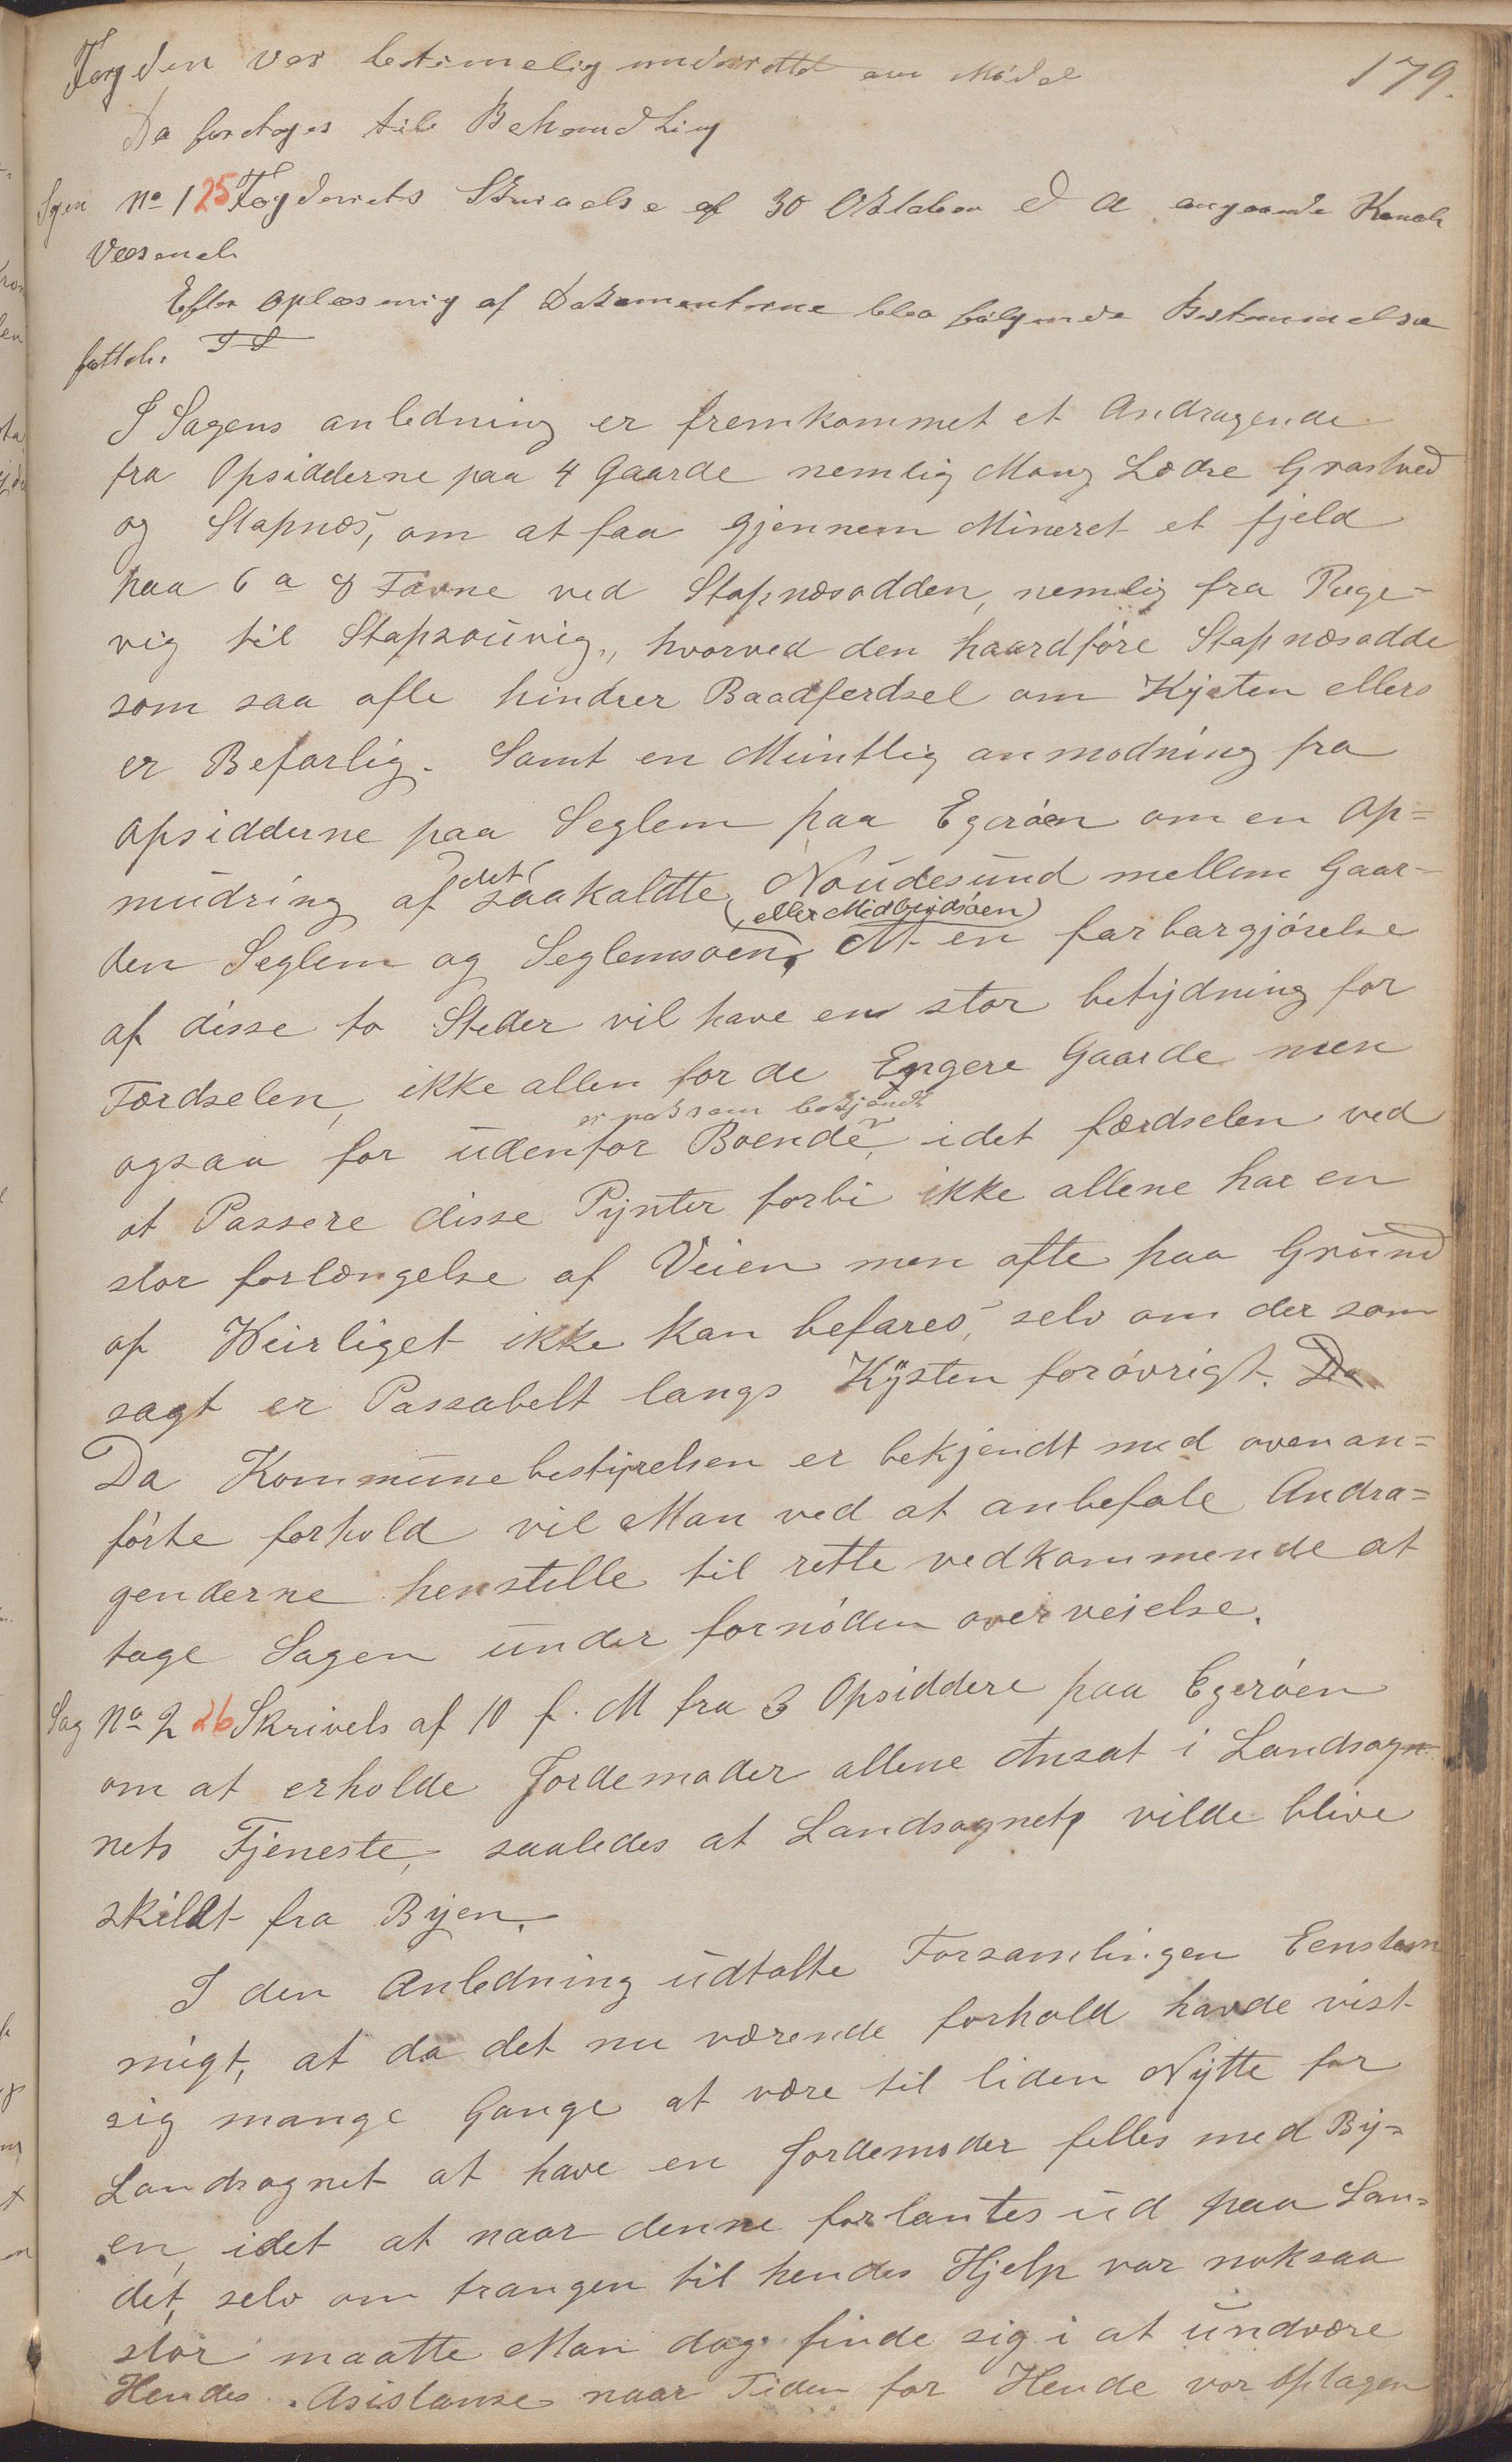 179.
Fogden var betimelig underrettet om Mødet
Da foretoges till Behandling
Sagen No 1 25 Fogderiets Skrivelse af 30 Oktober d A angaaende Kanal
Væsenet
Efter Oplæsning af Dokumenterne blev følgende Bestemmelse
fattet:
I Sagens anledning er fremkommet et Andragende
fra Opsidderne paa 4 Gaarde nemlig Mong Lædre Grastved
og Stapnæs, om at faa gjennem Mineret et fjeld
paa 6 a 8 Favne ved Stapnæsodden, nemlig fra Puge-
vig til Stapsouvig, hvorved den haardføre Stapnæsodde
som saa ofte hindrer Baadferdsel om Kysten ellers
er Befarlig. Samt en Muntlig anmodning fra
Opsidderne paa Seglem paa Egerøen om en Op=
mudring af det saakaldte Noudesund mellem Gaar-
den Seglem og Seglemsøen (eller Midbrødsøen). At en farbargjørelse
af disse to Steder vil have en stor betydning for
Færdselen, ikke allen for de Engere Gaarde men
ogsaa for udenfor Boende, idet færdselen ved
er nok som bekjendt
at Passere disse Pynter forbi ikke allene har en
stor forlængelse af Veien men ofte paa Grund
af Weirliget ikke kan befares, selv om der som
sagt er Passabelt langs Kysten forøvrigt. Da
Da Kommunebestyrelsen er bekjendt med ovenan=
førte forhold vil Man ved at anbefale Andra=
genderne henstille til rette vedkommende at
tage Sagen under fornøden overveielse.
Sag No 2 26 Skrivels af 10 f. M fra 3 Opsiddere paa Egerøen
om at erholde Jordemoder allene Ansat i Landsog
nets Tjeneste, saaledes at Landsognet vilde blive
skildt fra Byen.
I den Anledning udtalte Forsamlingen Eenstem
migt, at da det nu værende forhold havde vist
sig mange Gange at være til liden Nytte for
Landsognet at have en Jordemoder felles med By=
en, idet at naar denne forlantes ud paa Lan=
det, selv om trangen til hendes Hjelp var noksaa
stor maatte Man dog finde sig i at undvære
Hendes Asistanse naar Tiden for Hende var optagen